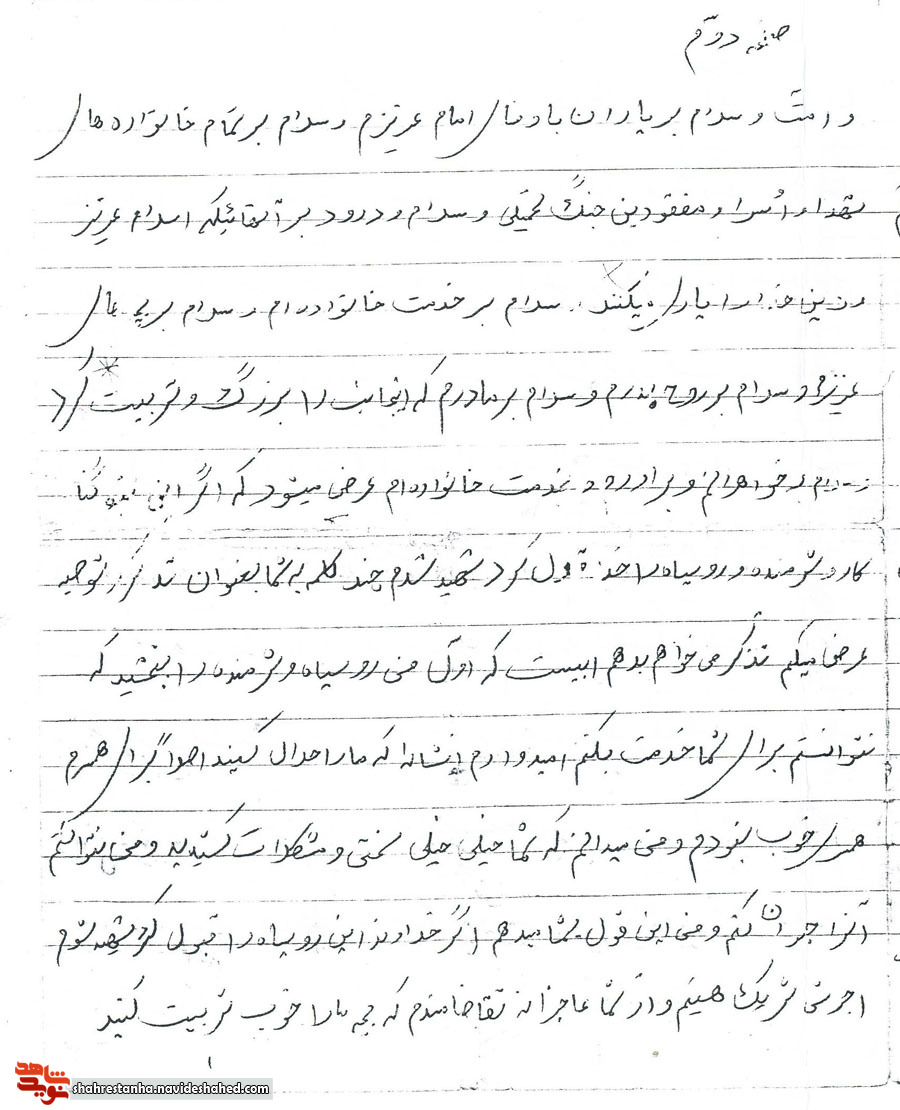 صفحه دوّم
و امّت و سلام بر یاران باوفای امام عزیزم و سلام بر تمام خانواده های
شهدا و اُسرا و مفقودین جنگ تحمیلی و سلام و درود بر آنهائیکه اسلام عزیز
و دین خدا را یاری میکنند. سلام بر خدمت خانواده ام و سلام بر بچه های
عزیزم و سلام بر روح پدرم و سلام بر مادرم که اینجانب را بزرگ و تربیت کرد
سلام بر خواهرانم و برادرم و خدمت خانواده ام عرض میشود که اگر این گنا
کار و شرمنده و روسیاه را خدا قبول کرد شهید شدم چند کلمه به شما بعنوان تذکر توصیه
عرض میکنم تذکّر می خواهم بدهم اینست که اوّل من روسیاه و شرمنده را ببخشید که
نتوانستم برای شما خدمت بکنم امیدوارم إنشاله که ما را حلال کنید اصولاً برای همسرم
همسری خوب نبودم و من میدانم که شما خیلی خیلی سختی و مشکلات کشیدید و من نتوانستم
آنرا جبران کنم و من این قول بشما میدهم اگر خداوند این روسیاه را قبول کرد شهید شوم
اجرش شریک هستیم و از شما عاجزانه تقاضامندم که بچه ها را خوب تربیت کنید
۱
شاهد
نوید
shahrestanha.navideshahed.com